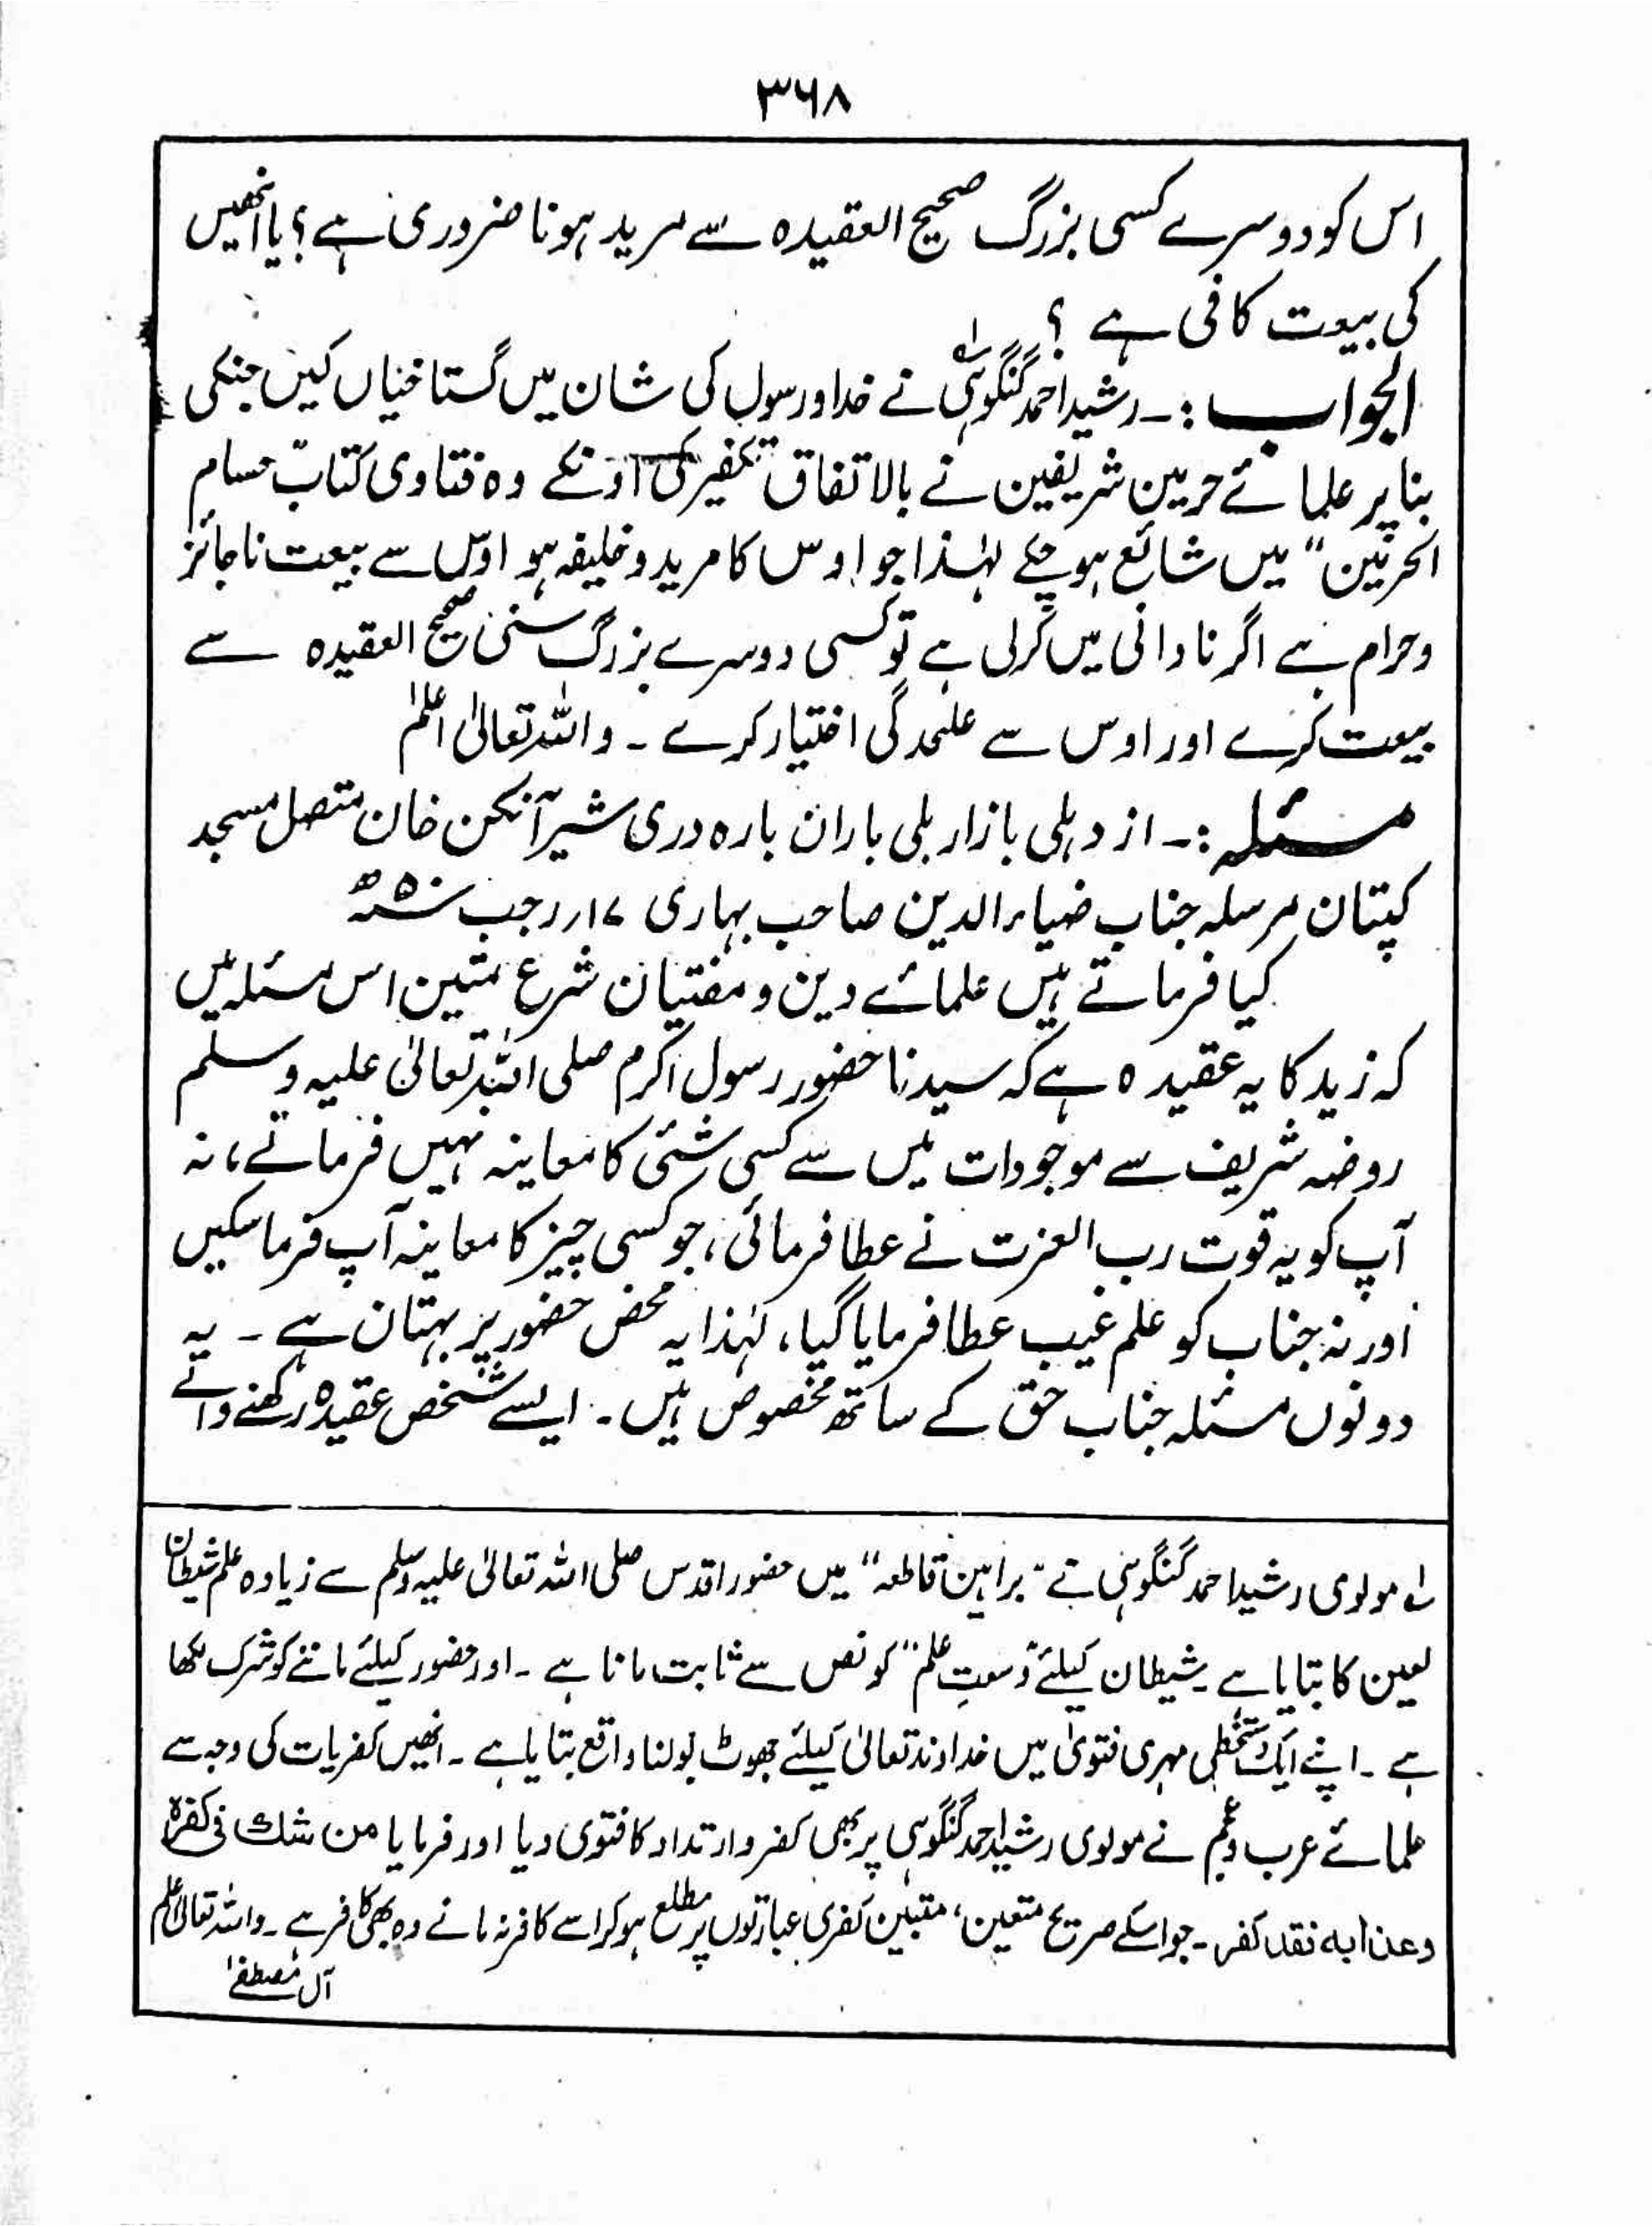 ۳۶۸
اس کو دوسرے کسی بزرگ صحیح العقیدہ سے مرید ہونا ضروری ہے؟ یا انھیں
کی بیعت کافی ہے ؟
الجواب :۔ رشید احمد گنگوہی؂۱ نے خدا و رسول کی شان میں گستاخیاں کیں جنکی
بنا پر علمائے حرمین شریفین نے بالاتفاق تکفیر کی اونکے وہ فتاوی کتاب "حسام
الحرمین" میں شائع ہو چکے لہٰذا جو اوس کا مرید و خلیفہ ہو اوس سے بیعت ناجائز
و حرام ہے اگر نادانی میں کرلی ہے تو کسی دوسرے بزرگ سنی صحیح العقیدہ سے
بیعت کرے اور اوس سے علٰحدگی اختیار کرے ۔ واللہ تعالیٰ اعلم
مسئلہ :۔ از دہلی بازار بلی باران بارہ دری شیر آفکن خان متصل مسجد
کپتان مرسلہ جناب ضیاء الدین صاحب بہاری ۱۷؍ رجب ۵۰ھ
کیا فرماتے ہیں علمائے دین و مفتیان شرع متین اس مسئلہ میں
کہ زید کا یہ عقیدہ ہے کہ سیدنا حضور رسول اکرم صلی اللہ تعالیٰ علیہ وسلم
روضہ شریف سے موجودات میں سے کسی شئی کا معاینہ نہیں فرماتے، نہ
آپ کو یہ قوت رب العزت نے عطا فرمائی، جو کسی چیز کا معاینہ آپ فرما سکیں
اور نہ جناب کو علم غیب عطا فرمایا گیا، لہٰذا یہ محض حضور پر بہتان ہے ۔ یہ
دونوں مسئلہ جناب حق کے ساتھ مخصوص ہیں ۔ ایسے شخص عقیدہ رکھنے والے
؂۱ مولوی رشید احمد گنگوہی نے "براہین قاطعہ" میں حضور اقدس صلی اللہ تعالیٰ علیہ وسلم سے زیادہ علم شیطان
لعین کا بتایا ہے شیطان کیلئے "وسعتِ علم" کو نص سے ثابت مانا ہے ۔ اور حضور کیلئے ماننے کو شرک لکھا
ہے ۔ اپنے ایک دستخطی مہری فتویٰ میں خداوند تعالیٰ کیلئے جھوٹ بولنا واقع بتایا ہے ۔ انھیں کفریات کی وجہ سے
علمائے عرب و عجم نے مولوی رشید احمد گنگوہی پر بھی کفر و ارتداد کا فتوی دیا اور فرمایا من شك فی کفرہ
وعذابه فقد کفر ۔ جو اسکے صریح متعین، متبین کفری عبارتوں پر مطلع ہو کر اسے کافر نہ مانے وہ بھی کافر ہے ۔ واللہ تعالیٰ اعلم
آل مصطفےٰ